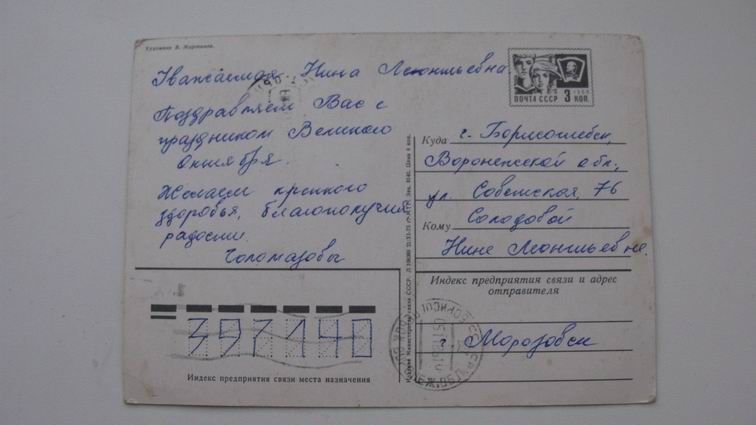 Художник В. Мартынов.
Уважаемая Нина Леонтьевна
Поздравляем Вас с
праздником Великого
Октября.
Желаем крепкого
здоровья, благополучия
радости.
Голомазовы
1966
ПОЧТА СССР 3 КОП.
Куда г. Борисоглебск,
Воронежской обл.,
ул. Советская, 76
Кому Солодовой
Нине Леонтьевне.
Индекс предприятия связи и адрес
отправителя
г. Морозовск
397140
Индекс предприятия связи места назначения
Министерство связи СССР.
Цена 4 коп.